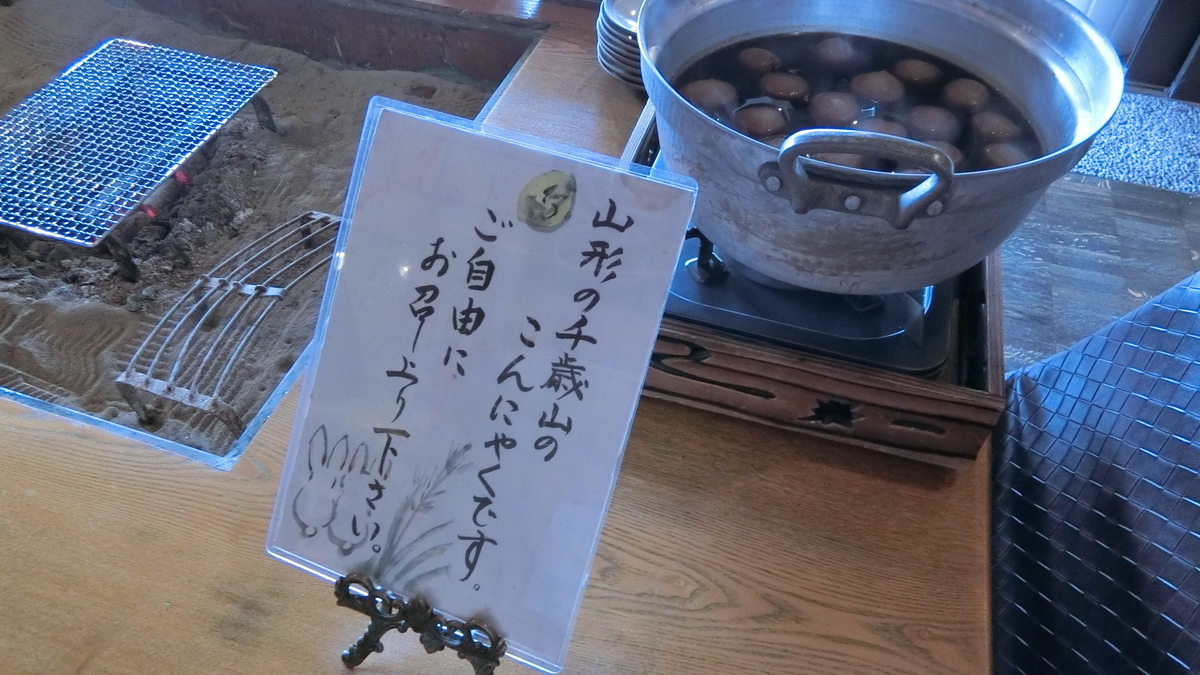 山形の千歳山の
こんにゃくです。
ご自由に
お召し上り下さい。